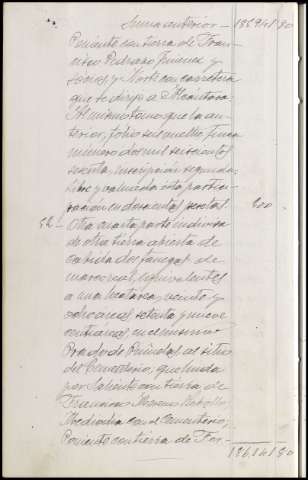 Suma anterior — 18594180
Poniente con tierra de Fran-
cisco Pedraza Jimenez y
y Norte con carretera
que se dirige a Alcántara.
Al mismo tomo que la an-
terior, folio seis vuelto, finca
número dos mil seiscientos
sesenta, inscripción segunda
libre y valorada esta partici-
pación en doscientas pesetas 200
52— Otra cuarta parte indivisa
de otra tierra abierta de
cabida dos fanegas de
marco real, equivalentes
a una hectárea, veinte y
ocho areas, setenta y nueve
centiáreas, en el mismo
Prado de al sitio
del Cementerio, que linda
por Saliente con tierra de
Francisco Moreno
Mediodia con el Cementerio,
Poniente con tierra de Fer-